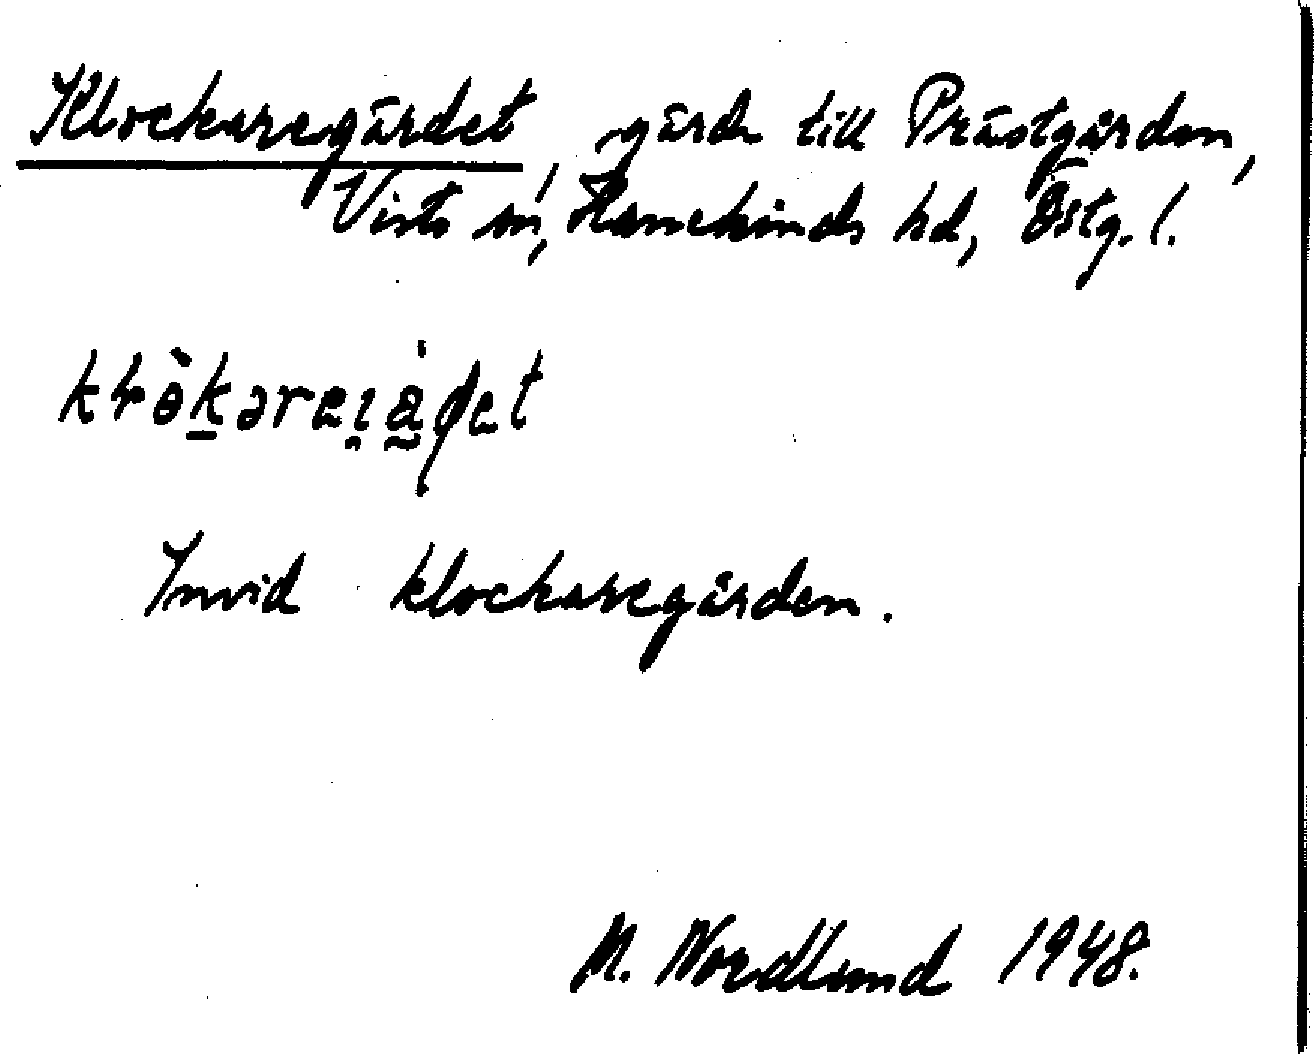 Klockaregärdet, gärde till Prästgården,
Vists sn, Hanekinds hd, Östg. l.
Invid klockaregården.
M. Nordlund 1948.